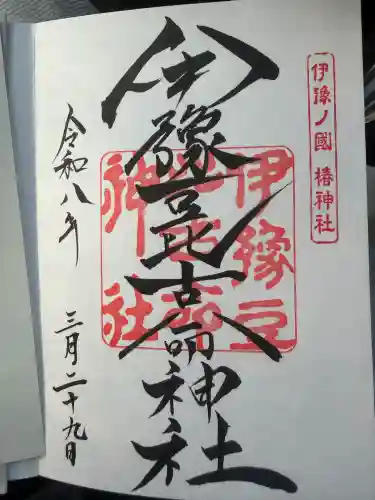 伊豫ノ國 椿神社
伊豫豆比古命神社
伊豫豆
比古命
神社
令和八年 三月二十九日